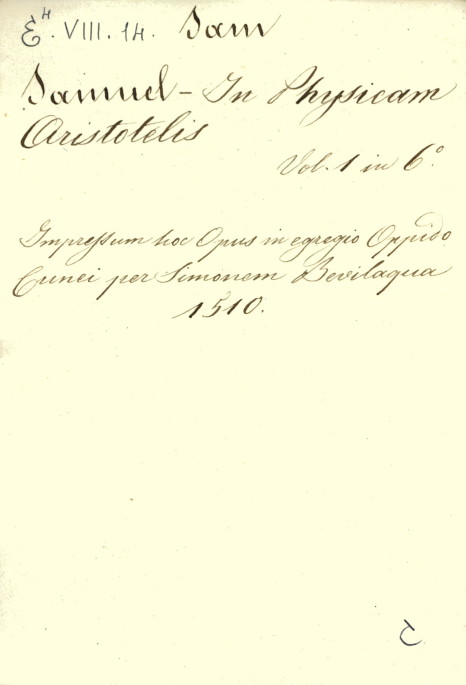 E⁴. VIII. 14. Sam
Samuel - In Physicam
Aristotelis
Vol. 1 in 6°.
Impressum hoc Opus in egregio Oppido
Cunei per Simonem Bevilaqua
1510.